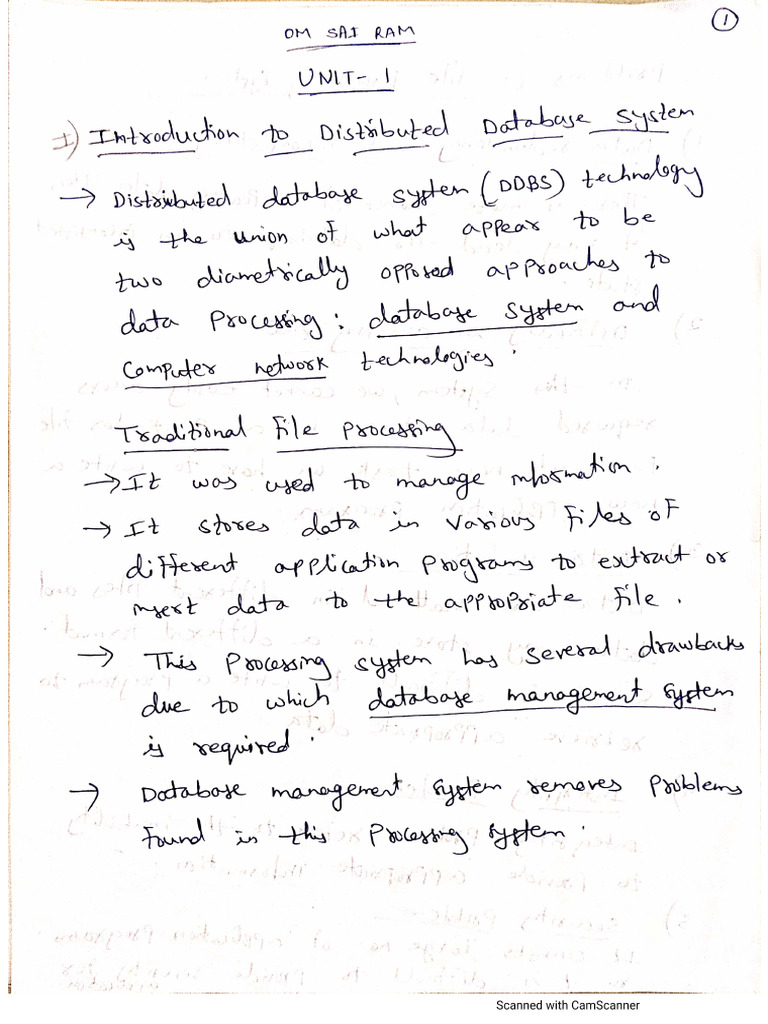 1
OM SAI RAM
UNIT-1
I) Introduction to Distributed Database System
→ Distributed database system (DDBS) technology
is the union of what appear to be
two diametrically opposed approaches to
data processing: database system and
Computer network technologies.
Traditional File Processing
→ It was used to manage information.
→ It stores data in various files of
different application programs to extract or
insert data to the appropriate file.
→ This processing system has several drawbacks
due to which database management system
is required.
→ Database management system removes problems
found in this processing system.
Scanned with CamScanner